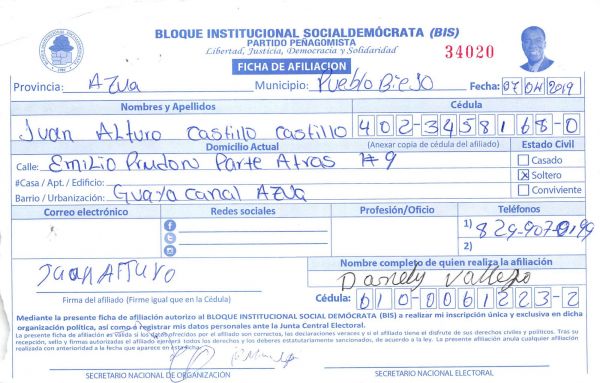 BLOQUE INSTITUCIONAL SOCIALDEMÓCRATA (BIS)
PARTIDO PEÑAGOMISTA
Libertad, Justicia, Democracia y Solidaridad
34020
FICHA DE AFILIACION
Provincia: AZUA Municipio: Pueblo Biejo Fecha: 07 04 2019
Nombres y Apellidos Cédula
Juan Alturo Castillo Castillo 402-3458168-0
Domicilio Actual (Anexar copia de cédula del afiliado) Estado Civil
Calle: Emilio Prudon Parte Atras #9 Casado
#Casa / Apt. / Edificio: X Soltero
Barrio / Urbanización: Guayacanal AZUA Conviviente
Correo electrónico Redes sociales Profesión/Oficio Teléfonos
1) 829-907-0199
2)
Juan Alturo
Nombre completo de quien realiza la afiliación
Danely Vallejo
Firma del afiliado (Firme igual que en la Cédula) Cédula: 010-0061223-2
Mediante la presente ficha de afiliación autorizo al BLOQUE INSTITUCIONAL SOCIAL DEMÓCRATA (BIS) a realizar mi inscripción única y exclusiva en dicha
organización política, así como a registrar mis datos personales ante la Junta Central Electoral.
La presente ficha de afiliación es válida si los datos ofrecidos por el afiliado son correctos, las declaraciones veraces y si el afiliado tiene el disfrute de sus derechos civiles y políticos. Tras su
recepción, sello y firmas autorizadas el afiliado ejercerá todos los derechos y los deberes estatutariamente sancionados, de acuerdo a la ley. La presente afiliación anula cualquier afiliación
realizada con anterioridad a la fecha que aparece en esta ficha.
SECRETARIO NACIONAL DE ORGANIZACIÓN SECRETARIO NACIONAL ELECTORAL